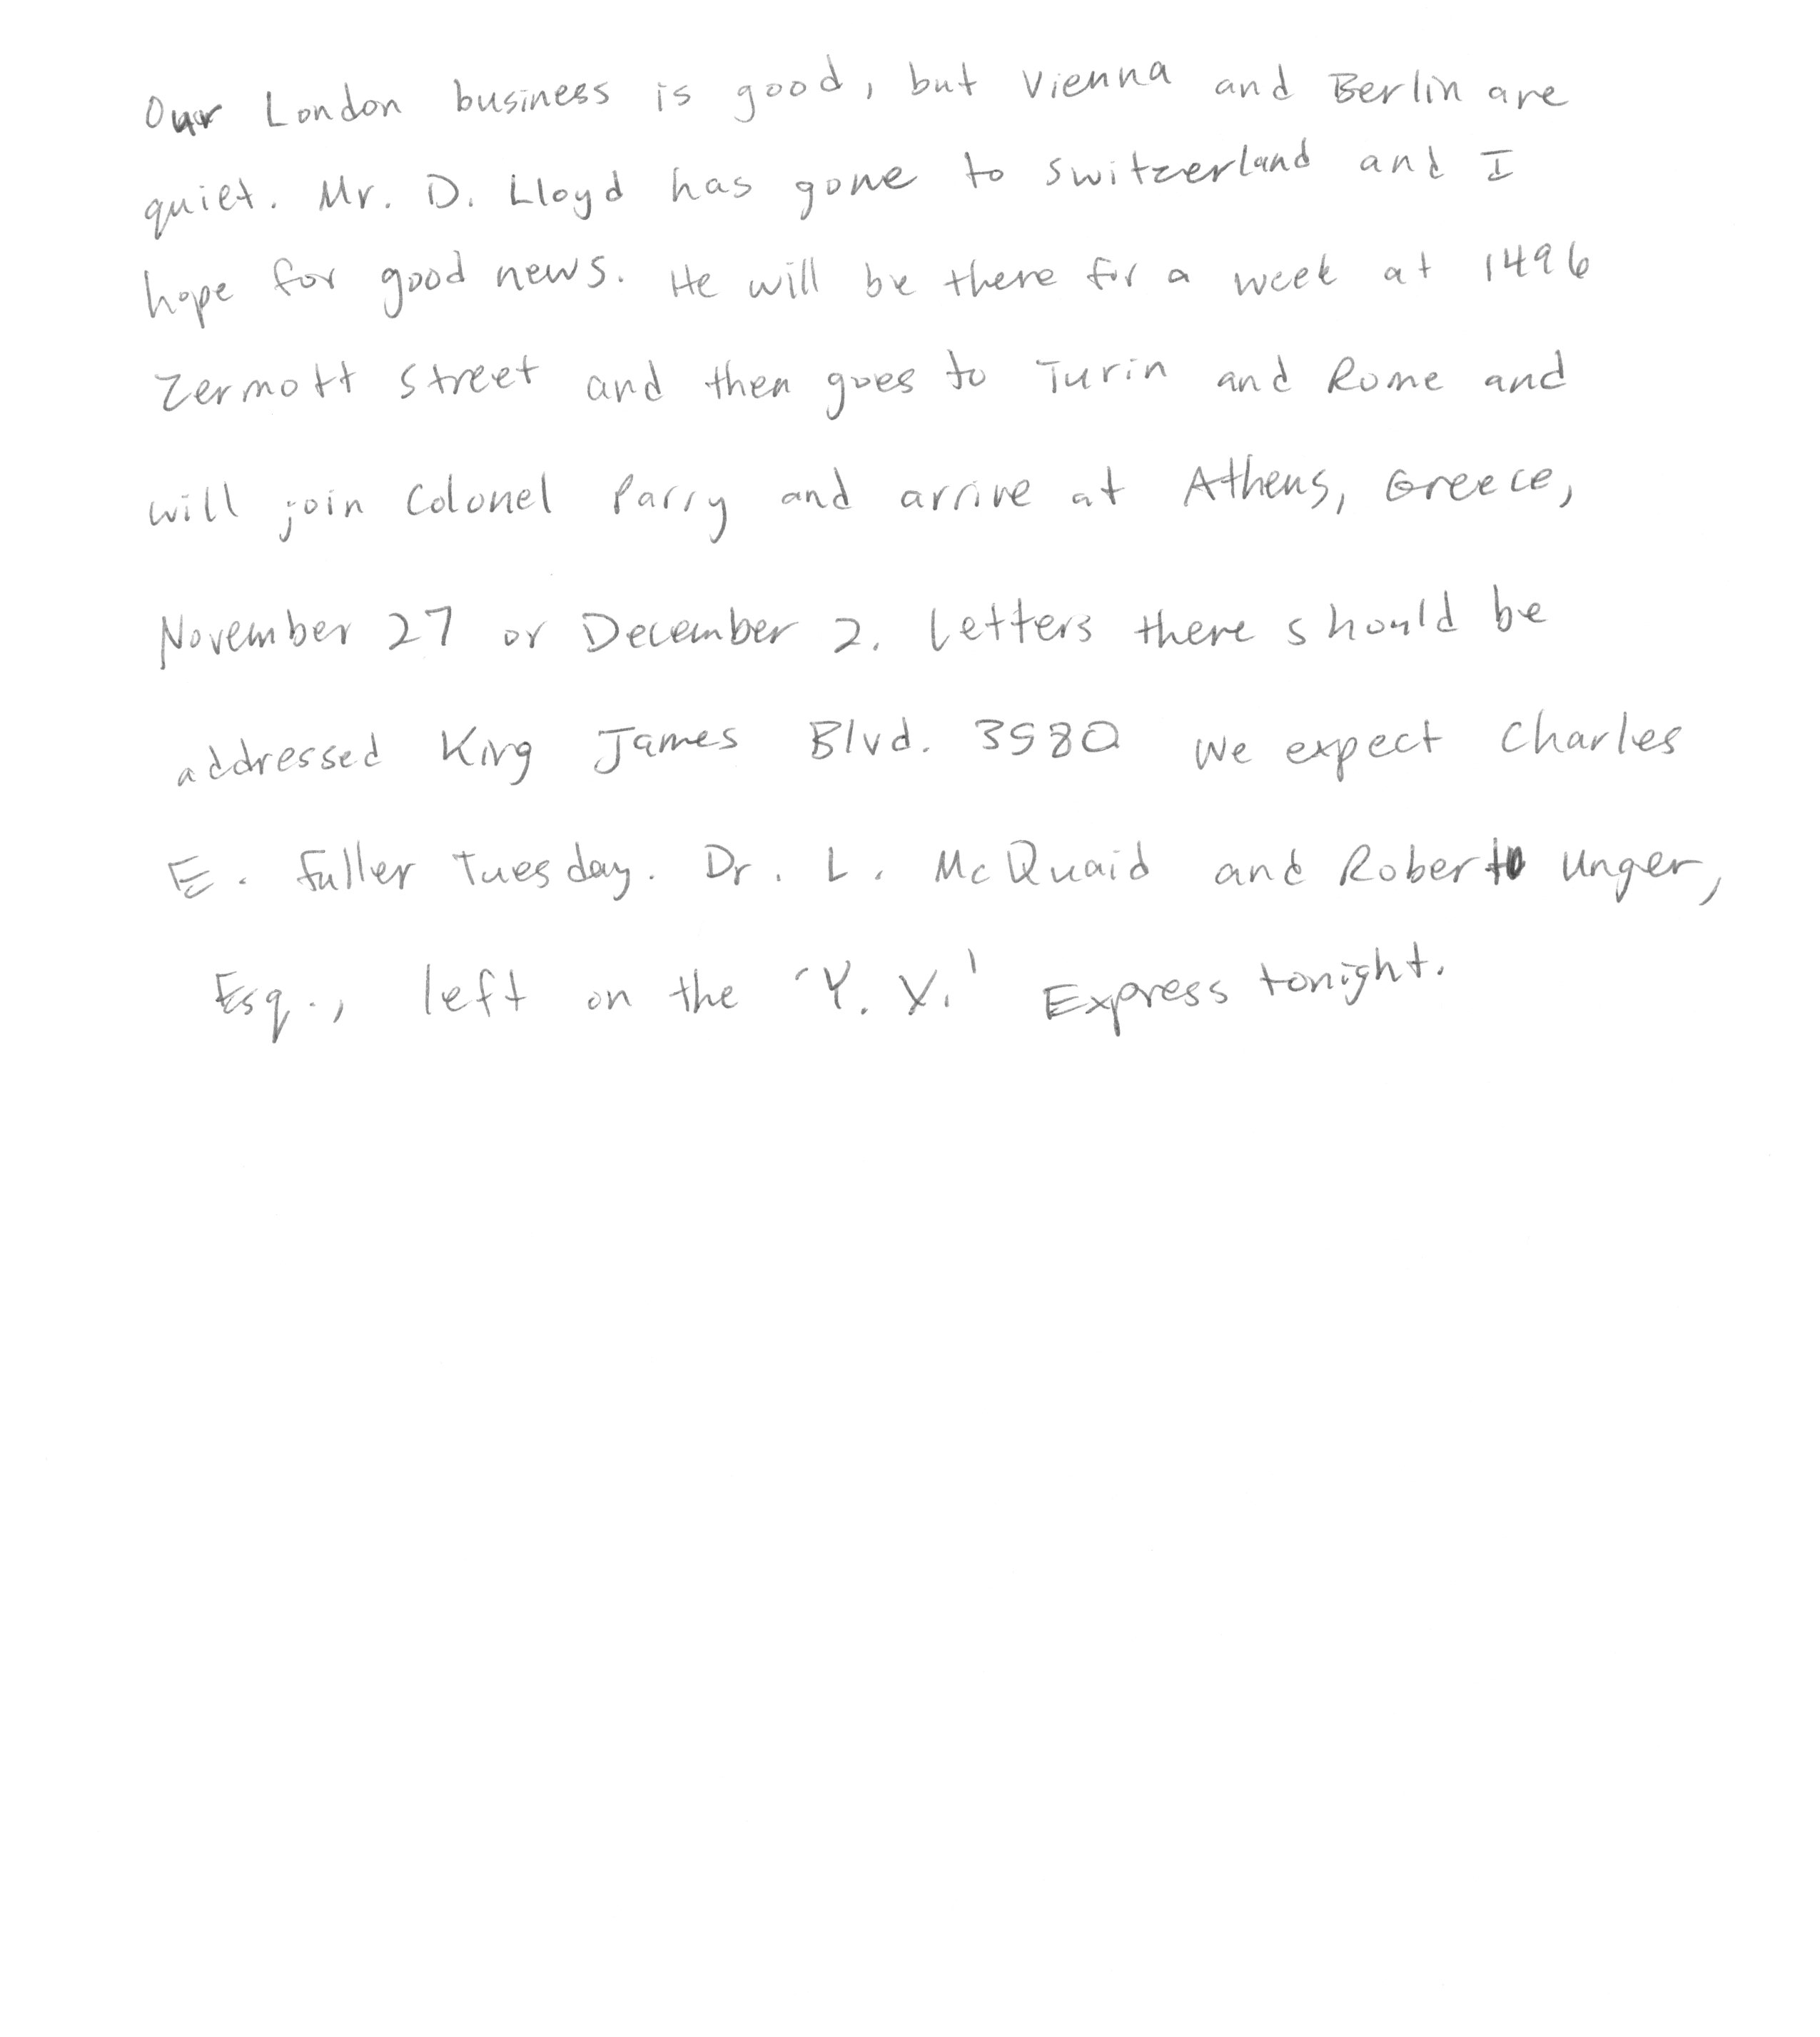 Our London business is good, but Vienna and Berlin are
quiet. Mr. D. Lloyd has gone to Switzerland and I
hope for good news. He will be there for a week at 1496
Zermott Street and then goes to Turin and Rome and
will join Colonel Parry and arrive at Athens, Greece,
November 27 or December 2. Letters there should be
addressed King James Blvd. 3580 We expect Charles
E. Fuller Tuesday. Dr. L. McQuaid and Robert Unger,
Esq., left on the 'Y. X.' Express tonight.